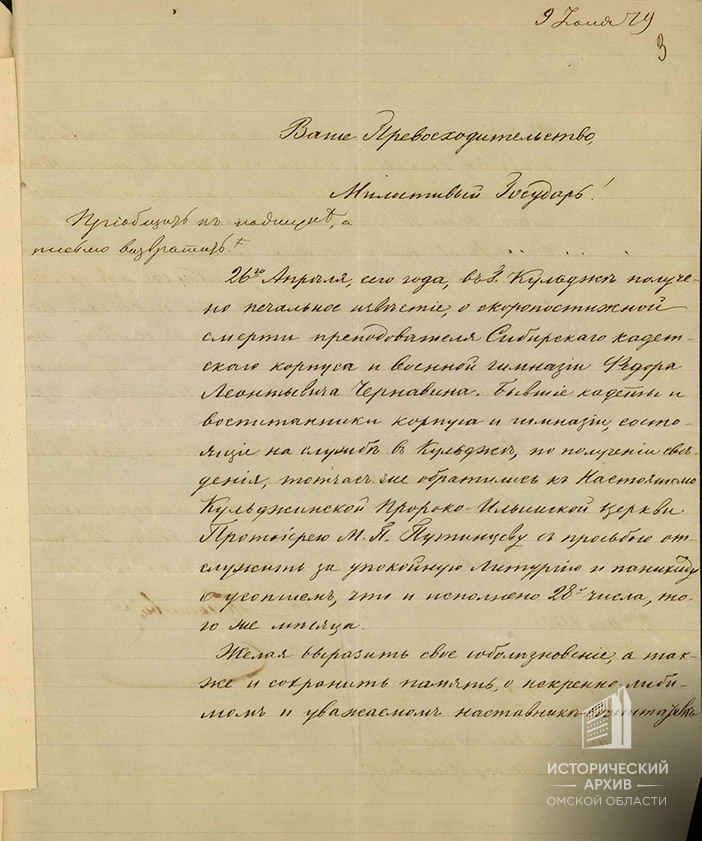 9 Юля 79
3
Ваше Превосходительство,
Милостивый Государь!
Пріобщить къ подпискѣ, а
письмо возвратить.
26го Апрѣля, сего года, въ г. Кульджѣ получе-
но печальное извѣстіе, о скоропостижной
смерти преподователя Сибирскаго кадет-
скаго корпуса и военной гимназіи Ѳедора
Леонтьевича Чернавина. Бывшіе кадеты и
воспитанники корпуса и гимназіи, состо-
ящіе на службѣ въ Кульджѣ, по полученіи свѣ-
денія, тотчасъ же обратились къ Настоятелю
Кульджинской Пророко-Ильинской церкви
Протоіерею М. П. Путинцеву съ просьбою от-
служить за упокойную Литургію и панихиду
о усопшемъ, что и исполнено 28го числа, то-
го же мѣсяца.
Желая выразить свое соболѣзнованіе, а так-
же и сохранить память, о искренно-люби-
момъ и уважаемомъ наставникѣ-воспитателѣ
ИСТОРИЧЕСКИЙ
АРХИВ
ОМСКОЙ ОБЛАСТИ